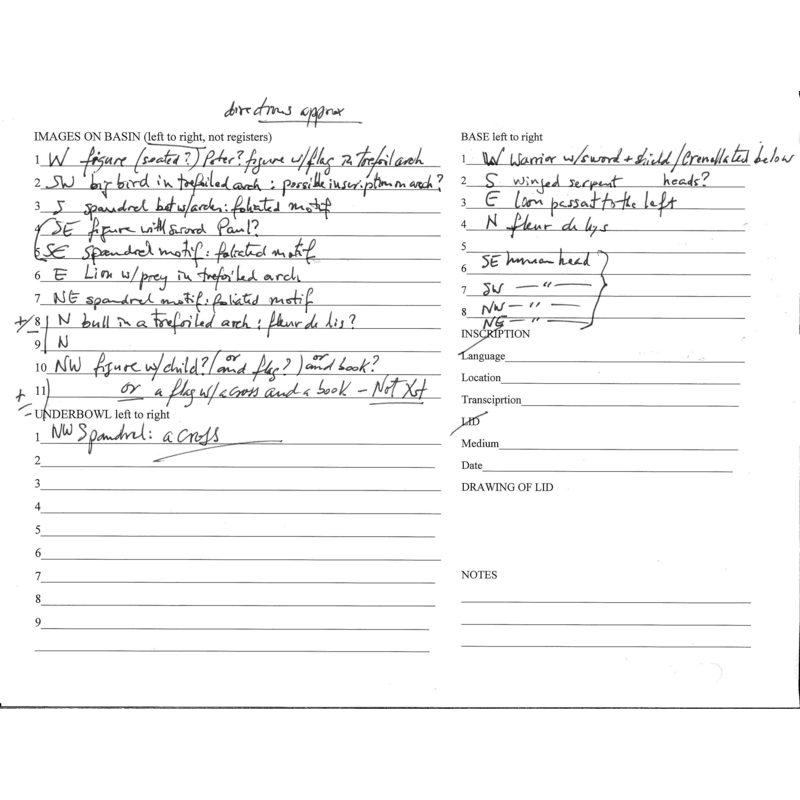 directions approx
IMAGES ON BASIN (left to right, not registers)
1 W figure (seated?) Peter? figure w/flag in trefoil arch
2 SW big bird in trefoiled arch : possible inscription on arch?
3 S spandrel betw arches: foliated motif
4 SE figure with sword Paul?
5 SE spandrel motif: foliated motif
6 E Lion w/prey in trefoiled arch
7 NE spandrel motif: foliated motif
+/8 N bull in a trefoiled arch : fleur de lis?
9 N
10 NW figure w/child? (or and flag?) or and book?
11 or a flag w/a cross and a book - Not Xst
UNDERBOWL left to right
1 NW Spandrel: a cross
2
3
4
5
6
7
8
9
BASE left to right
1 W Warrior w/sword + shield / Crenellated below
2 S winged serpent heads?
3 E lion passant to the left
4 N fleur de lys
5
6 SE human head
7 SW — " —
8 NW — " —
NE — " —
INSCRIPTION
Language
Location
Transciprtion
LID
Medium
Date
DRAWING OF LID
NOTES